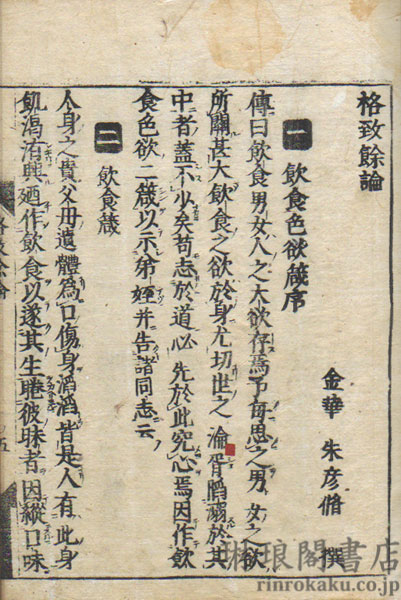 格致餘論
金華 朱彥脩 撰
一 飲食色欲箴序
傳曰飲食男女人之大欲存焉予每思之男女之欲
所關甚大飲食之欲於身尤切世之淪胥陷溺於其
中者蓋不少矣苟志於道必先於此究心焉因作飲
食色欲二箴以示弟姪并告諸同志云
二 飲食箴
人身之貴父母遺體為口傷身滔滔皆是人有此身
飢渴洊興廼作飲食以遂其生睠彼昧者因縱口味
琳琅閣書店
rinrokaku.co.jp